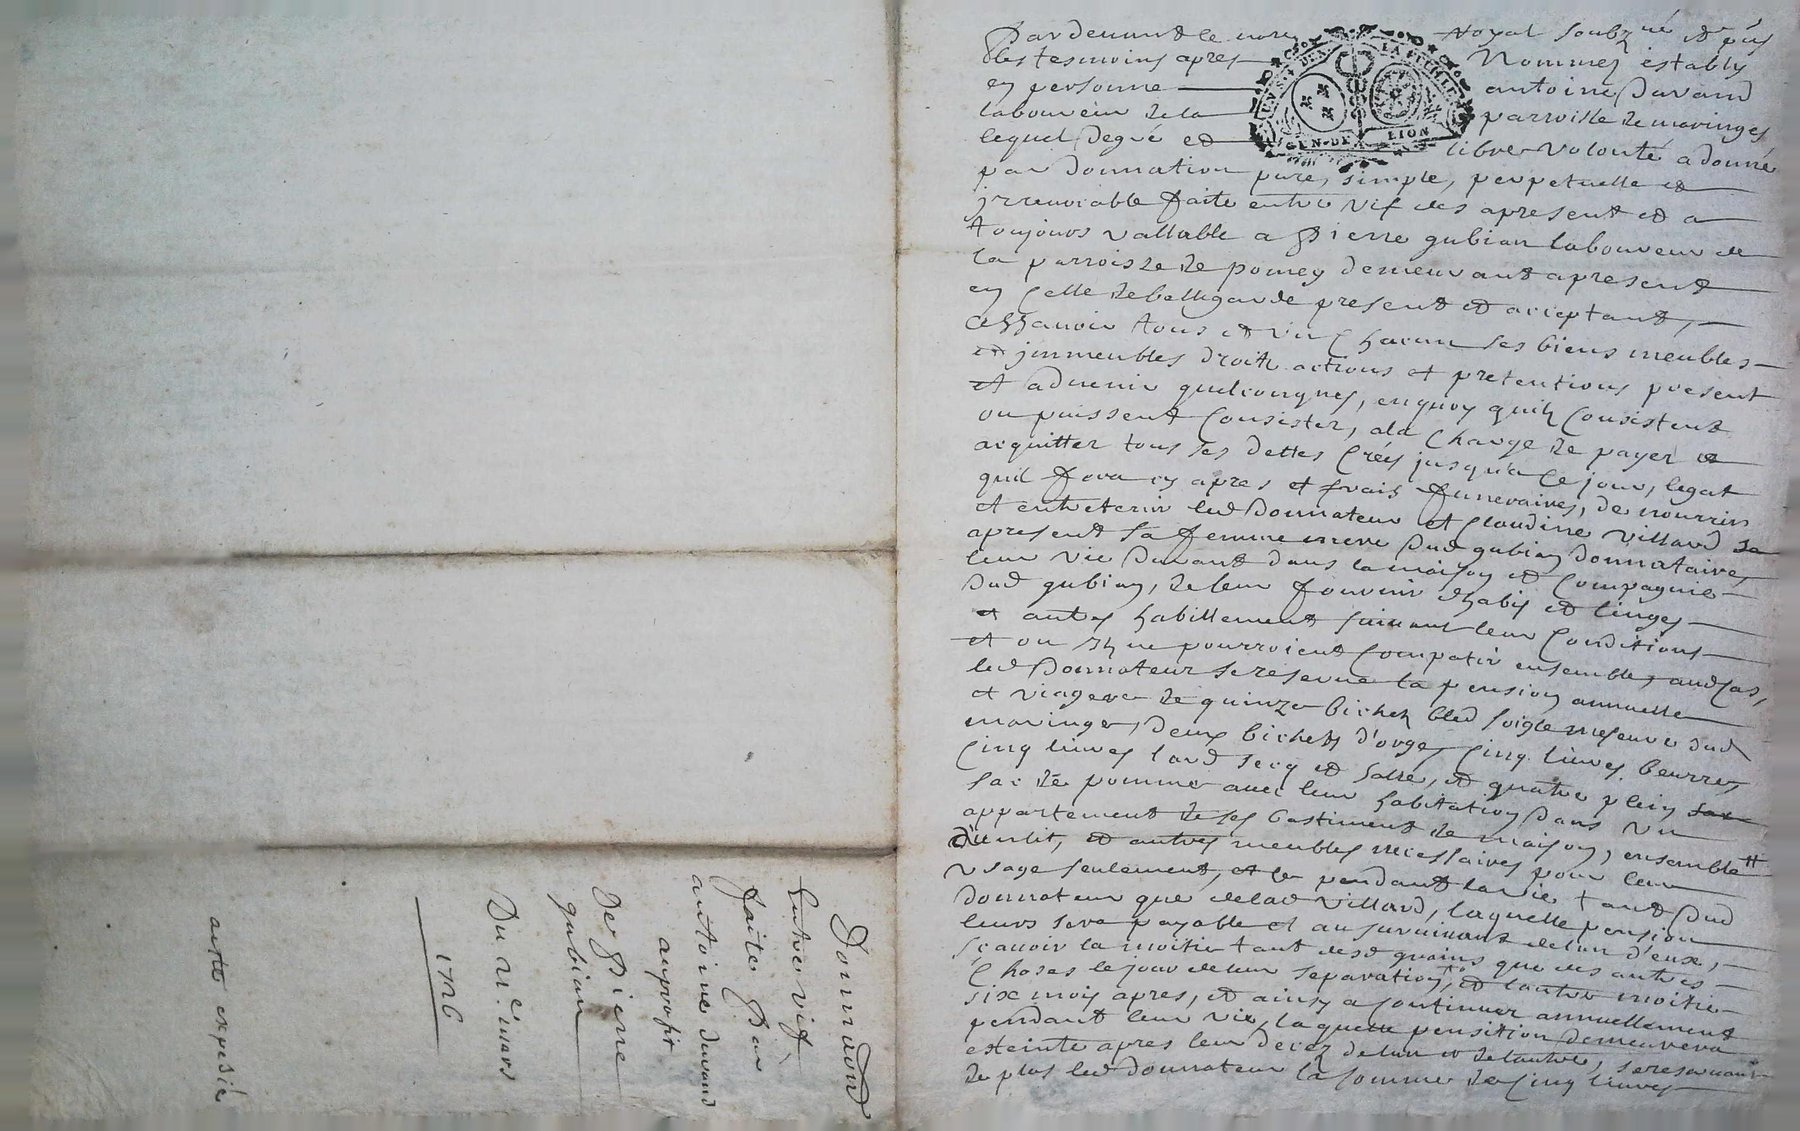 Pardevant le no.re Royal soubz.né et pñs
Les tesmoins apres Nommez establis
en personne antoine Durand
laboureur de la parroisse de maringes
lequel de gré et libre volonté a donné
par donnation pure, simple, perpetuelle et
jrreuocable faite entre vif des apresent et a
toujours vallable a Pierre gubian laboureur de
la parroisse de pomey demeurant apresent
en Celle de bellegarde present et acceptant,
assauoir tous et un Chacun ses biens meubles
et jmmeubles droitz actions et pretentions present
et aduenir quelconques, en quoy quilz Consistent
ou puissent Consister, a la Charge de payer et
acquitter tous ses dettes Créés jusqu'a Ce jour, legat
quil fera cy apres et fraix funeraires, de nourrir
et entretenir led Donnateur et Claudine Villard sa
apresent sa femme mere dud gubian donnataire
leur vie durant dans la maison et Compagnie
dud gubian, de leur fournir dhabis et linges
et autres habillements suiuant leur Conditions
et ou Ilz ne pourroient Compatir ensembles, aud Cas,
led Donnateur se reserue la pension annuelle
et viagere de quinze bichetz bled soigle mesure dud
maringes, deux bichetz d'orge, Cinq liures beurre,
Cinq liures lard secq et sallé, et quatre plein
sac de pomme auec leur habitation dans un
appartement de ses bastiment de maison, ensemble
D'un lit, et autres meubles necessaires pour leur
usage seulement, et ce pendant la vie tant dud
donnateur que de lad Villard, laquelle pension
leurs sera payable et au suruiuant de lun d'eux,
sçauoir la moitié tant desd grains que des autres
Choses le jour de leur separation, et l'autre moitié
six mois apres, et ainsy a Continuer annuellement
pendant leur vie, laquelle pension demeurera
esteinte apres leur decez de lun et de lautre, se reseruant
de plus led donnateur la somme de Cinq liures
Donnaon
Entre vif
faite Par
antoine durand
au profit
De Pierre
gubian
Du 12.e mars
1726
acte expedié
UNS
LA FEUILLE
GEN. DE LION